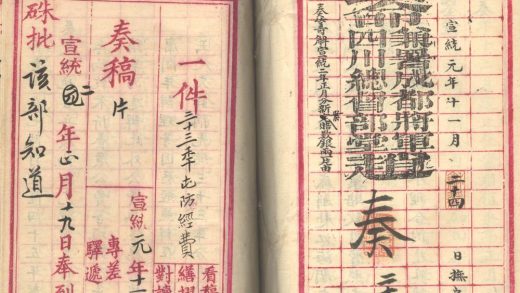 宣統元年十一月二十四日撫
兼署成都將軍
四川總督部堂
奏
一件三十三年屯防經費
看稿
繕摺
對讀
宣統元年十一
專差
驛遞
奏稿片
宣統二年正月十九日奉到
硃批該部知道